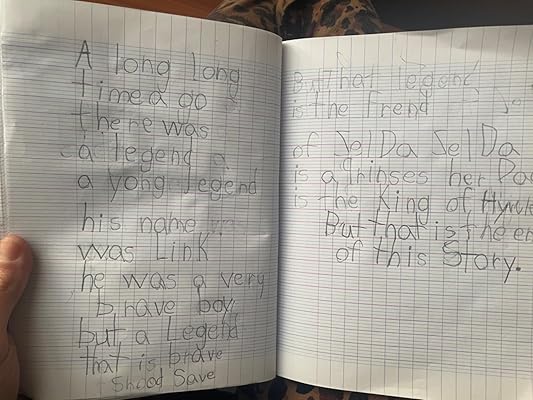 A long long
timea go
there was
a legend a
a yong legend
his name
was Link
he was a very
brave boy
but a Legend
that is brave
Shood Save
But that legend
is the frend
of SelDa SelDa
is a Prinses her Da
is the King of Hyrule
But that is the en
of this Story.